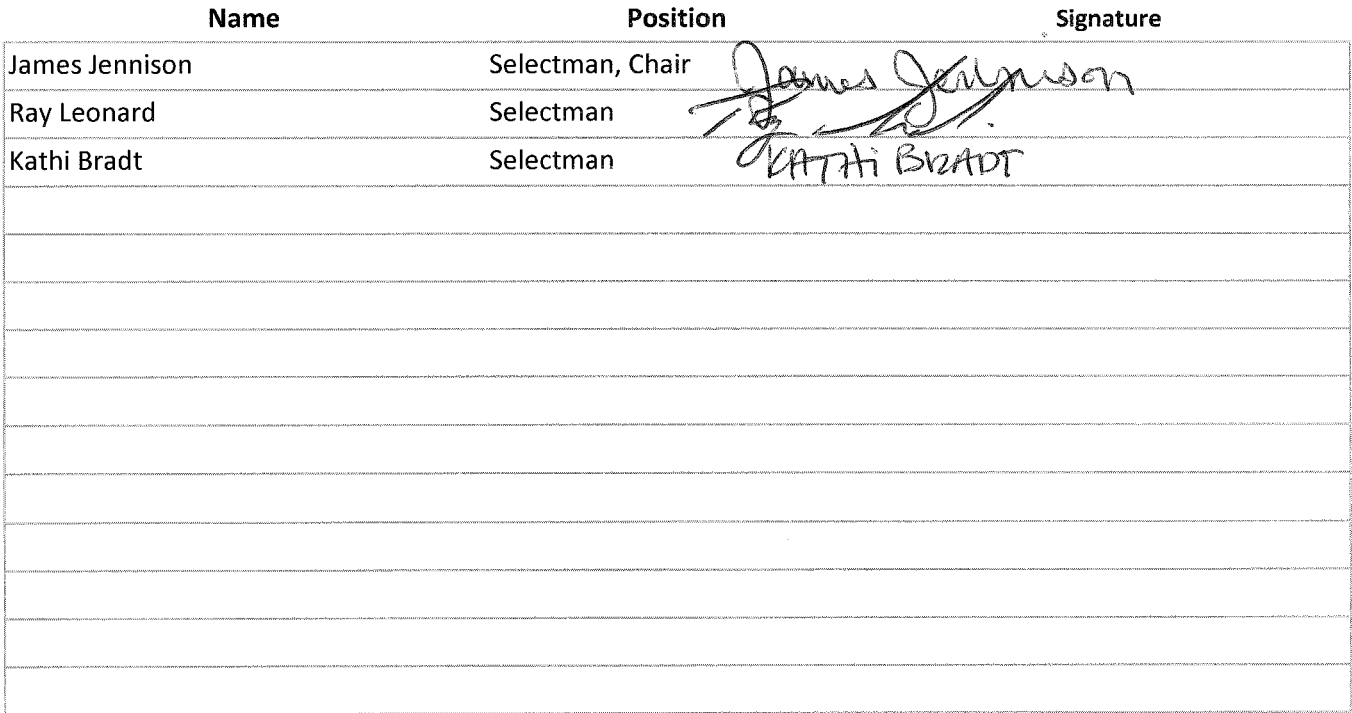 Name Position Signature
James Jennison Selectman, Chair James Jennison
Ray Leonard Selectman
Kathi Bradt Selectman KATHi BRADT